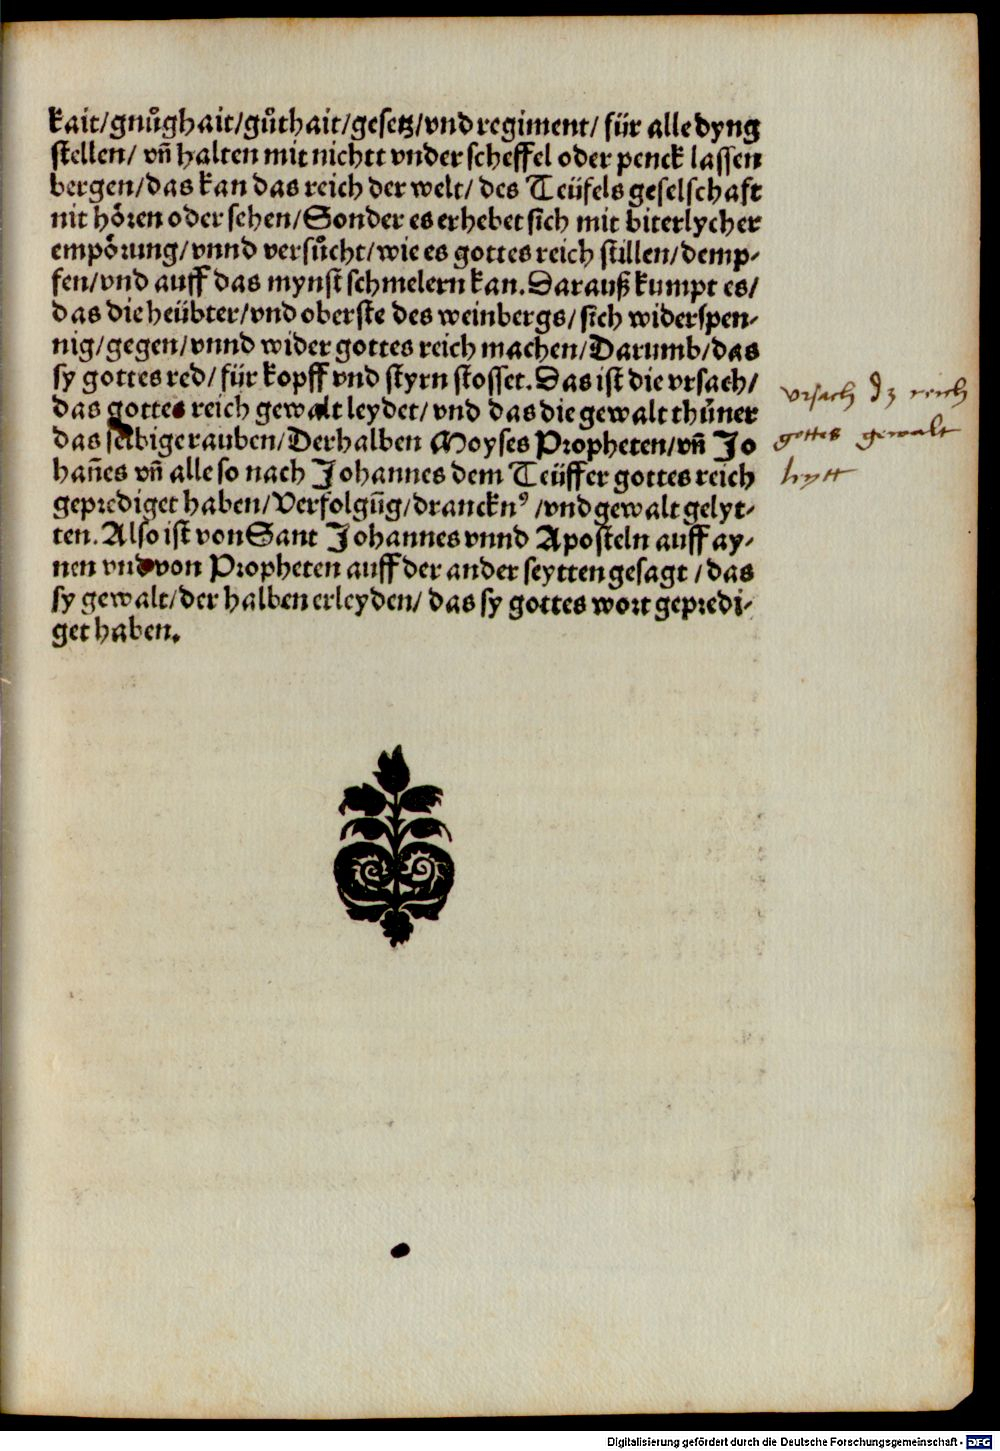 kait/gnůghait/gůthait/gesetz/vnd regiment/ für alle dyng
stellen/ vñ halten mit nichtt vnder scheffel oder penck lassen
bergen/das kan das reich der welt/ des Teüfels geselschaft
nit hören oder sehen/Sonder es erhebet sich mit biterlycher
empörung/vnnd versůcht/wie es gottes reich stillen/demp-
fen/vnd auff das mynst schmelern kan. Darauß kumpt es/
das die heübter/vnd oberste des weinbergs/ sich widerspen-
nig/gegen/vnnd wider gottes reich machen/Darumb/das
sy gottes red/ für kopff vnd styrn stosset. Das ist die vrsach/
das gottes reich gewalt leydet/ vnd das die gewalt thůner
das selbige rauben/Derhalben Moyses Propheten/vñ Jo
hañes vñ alle so nach Johannes dem Teüffer gottes reich
geprediget haben/Verfolgũg/dranckn⁹ /vnd gewalt gelyt-
ten. Also ist von Sant Johannes vnnd Aposteln auff ay-
nen vnd von Propheten auff der ander seytten gesagt /das
sy gewalt/der halben erleyden/ das sy gottes wort gepredi-
get haben.
vrsach dz reich
gottes gewalt
lrytt
Digitalisierung gefördert durch die Deutsche Forschungsgemeinschaft - DFG